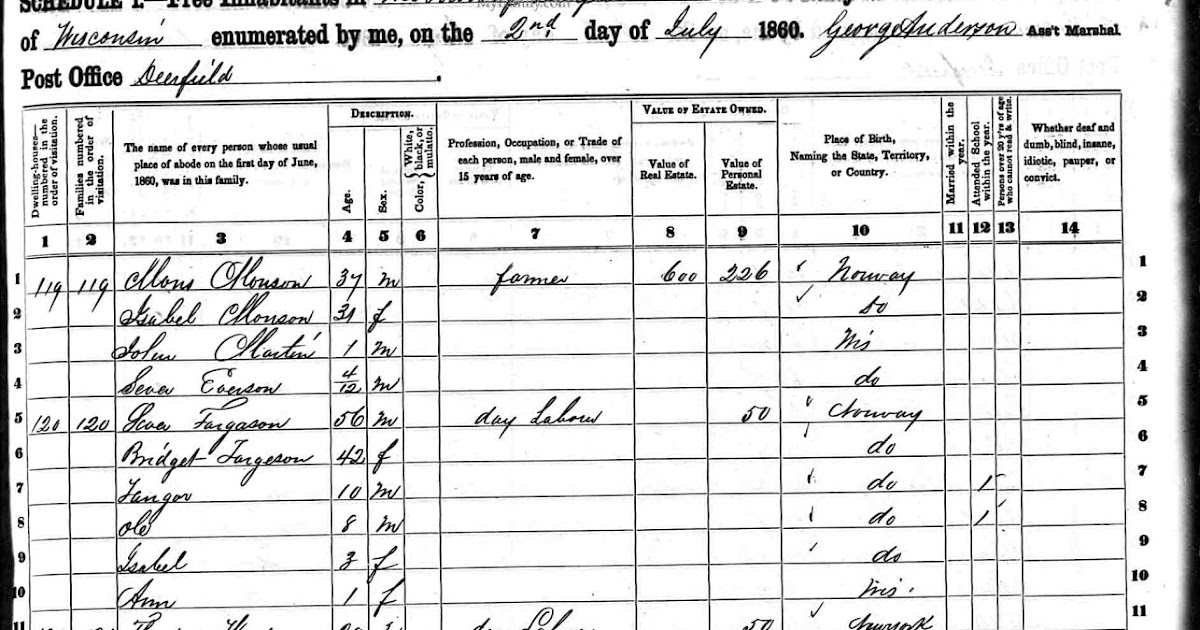 SCHEDULE 1.—Free Inhabitants in
of Wisconsin enumerated by me, on the 2nd. day of July 1860. Georg Anderson Ass't Marshal.
Post Office Deerfield.
Dwelling-houses—numbered in the order of visitation.
Families numbered in the order of visitation.
The name of every person whose usual place of abode on the first day of June, 1860, was in this family.
DESCRIPTION.
Age.
Sex.
Color, { White, black, or mulatto.
Profession, Occupation, or Trade of each person, male and female, over 15 years of age.
VALUE OF ESTATE OWNED.
Value of Real Estate.
Value of Personal Estate.
Place of Birth, Naming the State, Territory, or Country.
Married within the year.
Attended School within the year.
Persons over 20 y'rs of age who cannot read & write.
Whether deaf and dumb, blind, insane, idiotic, pauper, or convict.
1 2 3 4 5 6 7 8 9 10 11 12 13 14
1 119 119 Mons Monson 37 m farmer 600 226 Norway 1
2 Isabel Monson 31 f do 2
3 John Martin 1 m Wis 3
4 Sever Everson 4/12 m do 4
5 120 120 Sever Fargason 56 m day Labour 50 Norway 5
6 Bridget Targeson 42 f do 6
7 Tangor 10 m do 1 7
8 Ole 8 m do 1 8
9 Isabel 3 f do 9
10 Ann 1 f Wis. 10
11 50 11